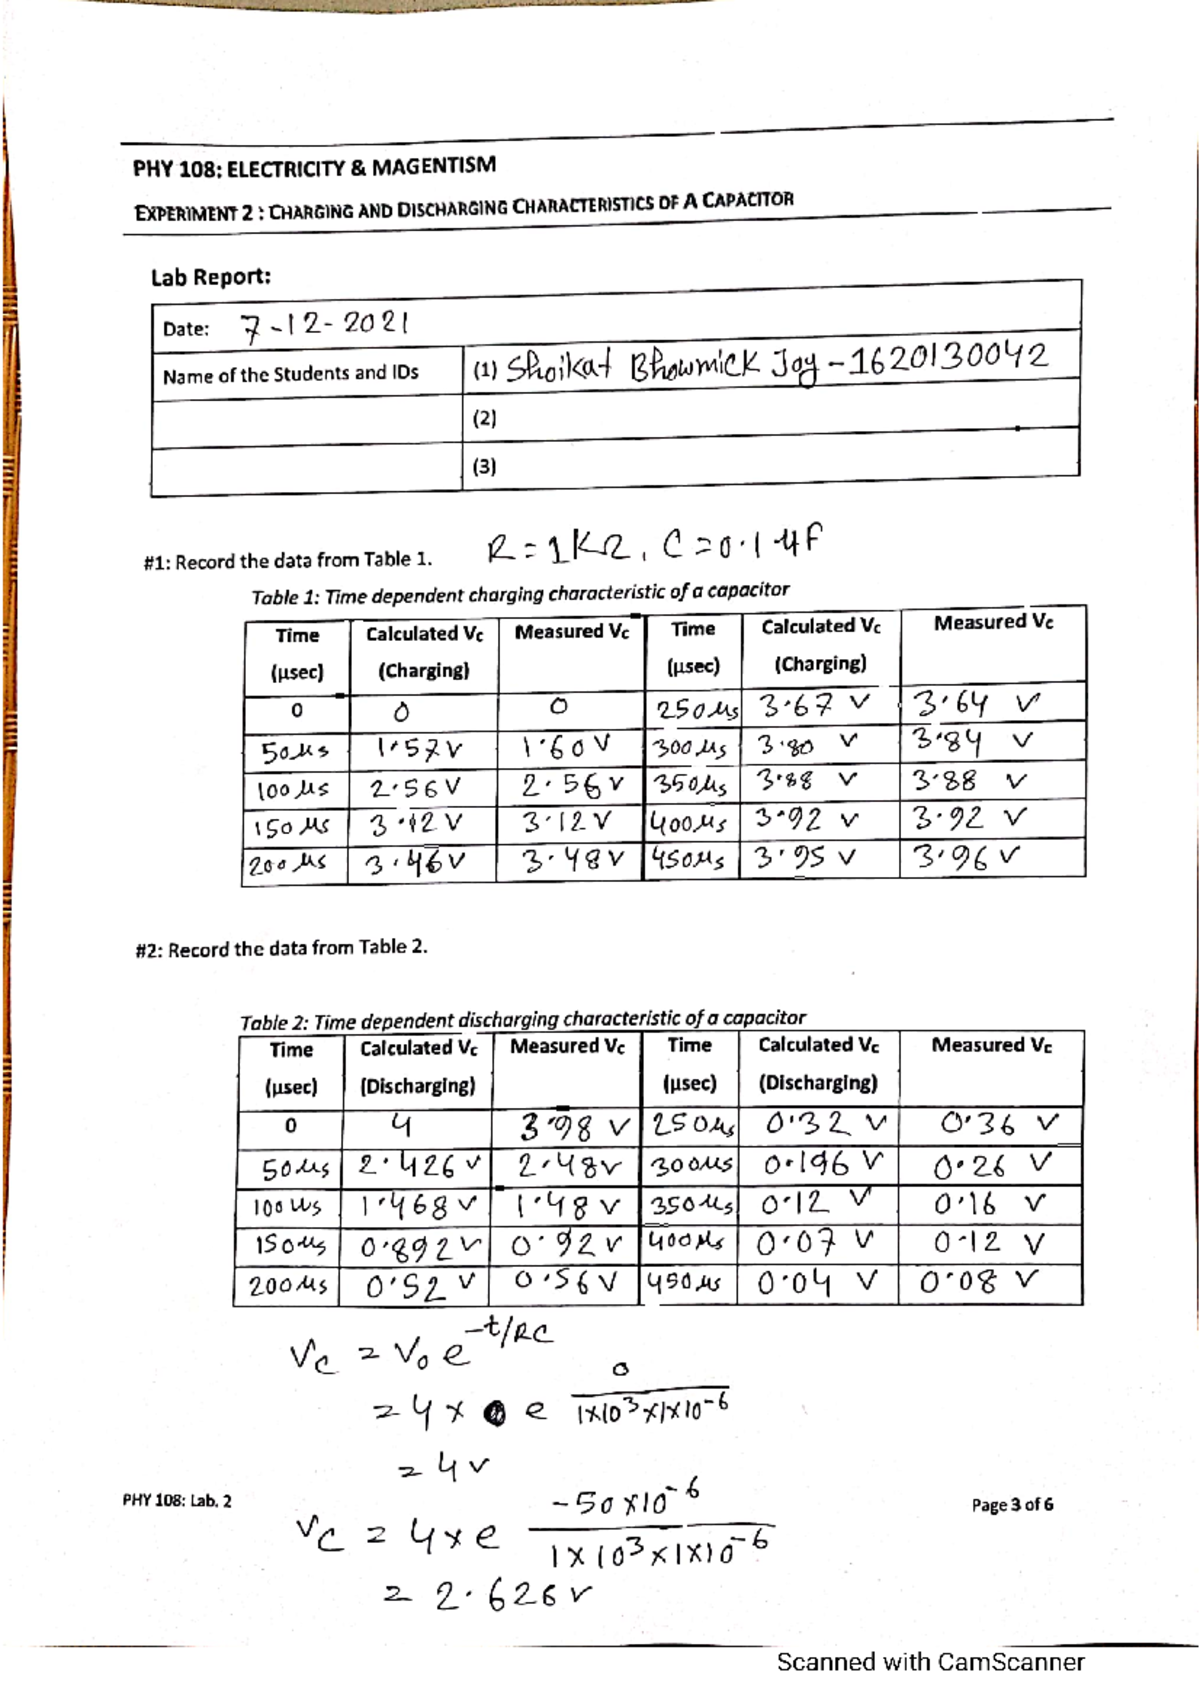 PHY 108: ELECTRICITY & MAGENTISM
EXPERIMENT 2 : CHARGING AND DISCHARGING CHARACTERISTICS OF A CAPACITOR
Lab Report:
Date: 7-12-2021
Name of the Students and IDs (1) Shoikat Bhowmick Joy - 1620130042
(2)
(3)
#1: Record the data from Table 1. R = 1KΩ, C = 0.1 μF
Table 1: Time dependent charging characteristic of a capacitor
Time Calculated Vc Measured Vc Time Calculated Vc Measured Vc
(μsec) (Charging) (μsec) (Charging)
0 0 0 250 μs 3.67 V 3.64 V
50 μs 1.57 V 1.60 V 300 μs 3.80 V 3.84 V
100 μs 2.56 V 2.56 V 350 μs 3.88 V 3.88 V
150 μs 3.12 V 3.12 V 400 μs 3.92 V 3.92 V
200 μs 3.46 V 3.48 V 450 μs 3.95 V 3.96 V
#2: Record the data from Table 2.
Table 2: Time dependent discharging characteristic of a capacitor
Time Calculated Vc Measured Vc Time Calculated Vc Measured Vc
(μsec) (Discharging) (μsec) (Discharging)
0 4 3.98 V 250 μs 0.32 V 0.36 V
50 μs 2.426 V 2.48 V 300 μs 0.196 V 0.26 V
100 μs 1.468 V 1.48 V 350 μs 0.12 V 0.16 V
150 μs 0.892 V 0.92 V 400 μs 0.07 V 0.12 V
200 μs 0.52 V 0.56 V 450 μs 0.04 V 0.08 V
Vc = V₀ e^-t/RC
= 4 × e 0 / 1×10³×1×10⁻⁶
= 4 V
PHY 108: Lab. 2 Page 3 of 6
Vc = 4 × e -50×10⁻⁶ / 1×10³×1×10⁻⁶
= 2.626 V
Scanned with CamScanner